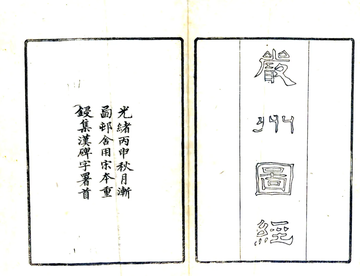 嚴州圖經
光緒丙申秋月漸
西邨舍用宋本重
鋟集漢碑字署首